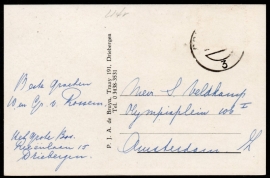 Beste groeten
van Gr. v. Rossem
Het Grote Bos.
15
Driebergen.
P. J. A. de Bruyn, Traay 191, Driebergen
Tel. 03438-3831
Mevr S. Veldkamp
Olympiaplein
Amsterdam Z
3